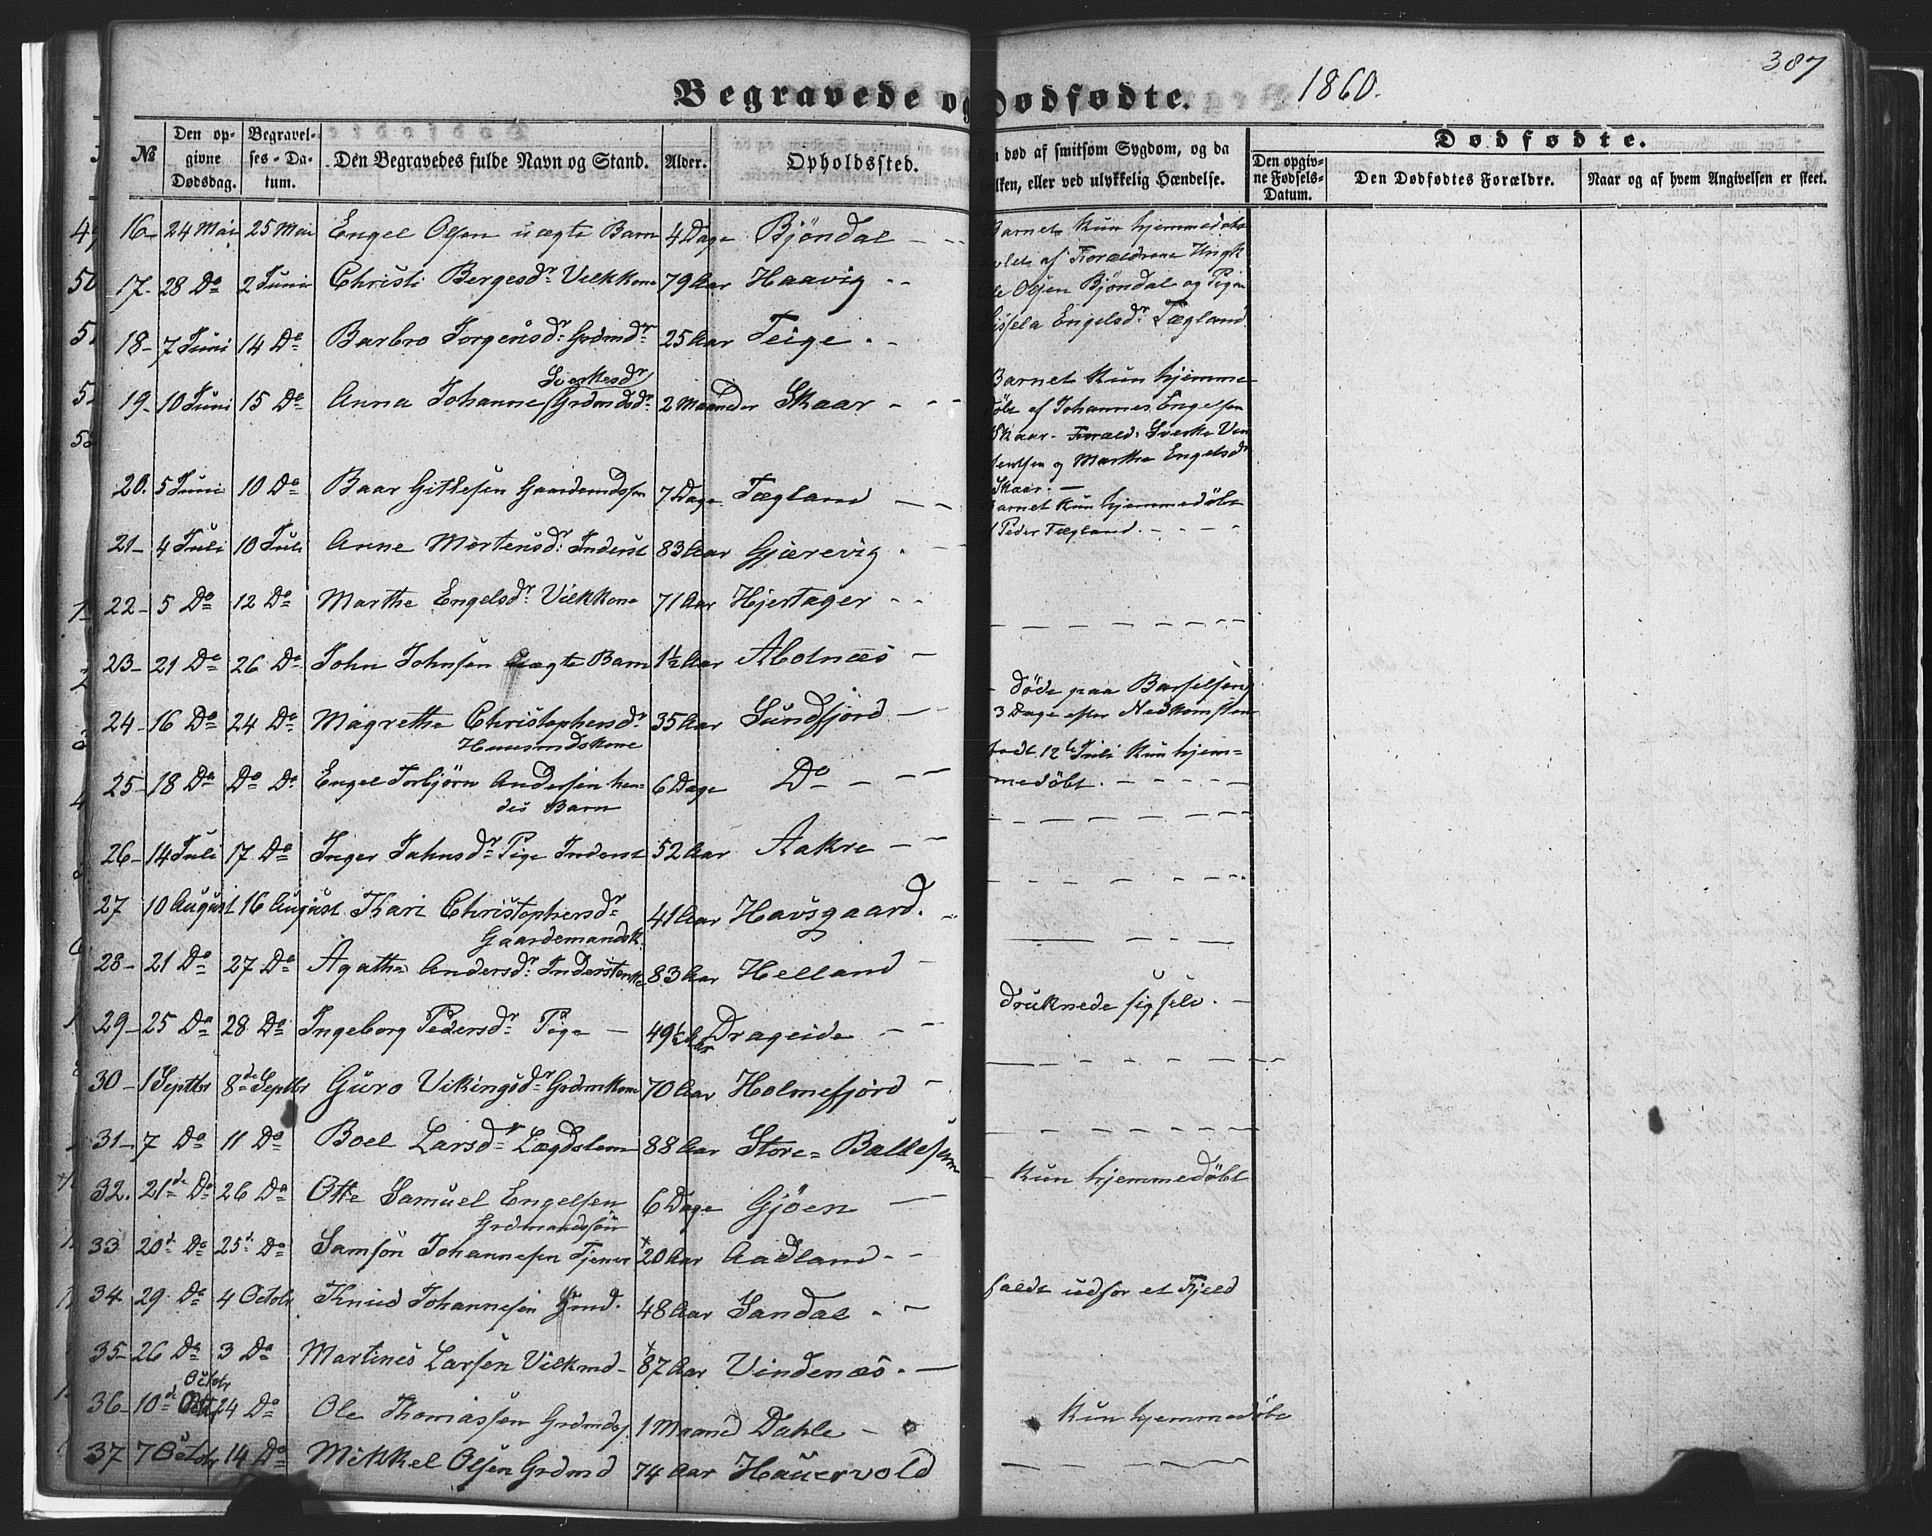 387
Begravede og Dødfødte. 1860.
№
Den opgivne Dødsdag.
Begravelses-Datum.
Den Begravedes fulde Navn og Stand.
Alder.
Opholdssted.
død af smitsom Sygdom, og da
ilken, eller ved ulykkelig Hændelse.
Dødfødte.
Den opgivne Fødsels-Datum.
Den Dødfødtes Forældre.
Naar og af hvem Angivelsen er skeet.
16 24 Mai 25 Mai Engel Olsen uægte Barn 4 Dage Bjöndal
Barnet kun hjemmedøbt
af Forældrene Ungk
Ole Olsen Bjöndal og Pigen
Sissela Engelsdr. Tægland
17. 28 Do 2 Juni Christi Bergesdr. Vilkkone 79 Aar Haavig
18 7 Juni 14 Do Barbro Torgersdr. Grdmdr 25 Aar Teige
19 10 Juni 15 Do Anna Johanne Sverkesdr Grdmdsdr. 2 Maaneder Skaar
Barnet kun hjemme
døbt af Johannes Engelsen
Skaar. Foræld: Sverke
og Marthe Engelsdr
Skaar.
20. 5 Juni 10 Do Baar Gitlesen Gaardmdssøn 7 Dage Tægland
Barnet kun hjemmedöbt
Peder Tægland.
21 4 Juli 10 Juli Anne Mortensdr. Inderst 83 Aar Gjærevig
22 5 Do 12 Do Marthe Engelsdr. Vilkkone 71 Aar Hjertager
23 21 Do 26 Do John Johnsen uægte Barn 1½ Aar Alvnæs
24 16 Do 24 Do Magrethe Christophersdr. Huusmdskone 35 Aar Sundfjord
døde paa Barselseng
3 Dage efter Nedkomsten
25 18 Do Do Do Engel Torbjörn Andersen hendes Barn 6 Dage Do
født 12te Juli kun hjemmedöbt.
26 14 Juli 17 Do Inger Jahnsdr. Pige Inderst 52 Aar Aakre
27 10 August 16 August Kari Christophersdr. Gaardemandsk. 41 Aar Havsgaard.
28 21 Do 27 Do Agatha Andersdr. Inderstenke 83 Aar Helland
29 25 Do 28 Do Ingeborg Pedersdr. Pige 49½ Aar Drageide
druknede sig selv.
30 1 Septbr 8de Septbr Guro Vikingsdr. Grdmkone 70 Aar Holmefjord
31 7 Do 11 Do Boel Larsdr. Lægdslem 88 Aar Store=Ballesem
32. 21de Do 26 Do Otte Samuel Engelsen Grdmandssön 6 Dage Gjöen
Kun hjemmedöbt
33 20de Do 25de Do Samson Johannesen Tjener 20 Aar Aadland
34 29 Do 4 Octobr Knud Johannesen Gmd. 48 Aar Sandal
faldt udfor et Fjeld
35 26 Do 3 Do Martines Larsen Vilkmd 87 Aar Vindenæs
36 10de Octobr 24 Do Ole Thomassen Grdmds. 1 Maaned Dahle
Kun hjemmedöbt
37 7 Octobr 14 Do Mikkel Olsen Grdmd 74 Aar Hauervold